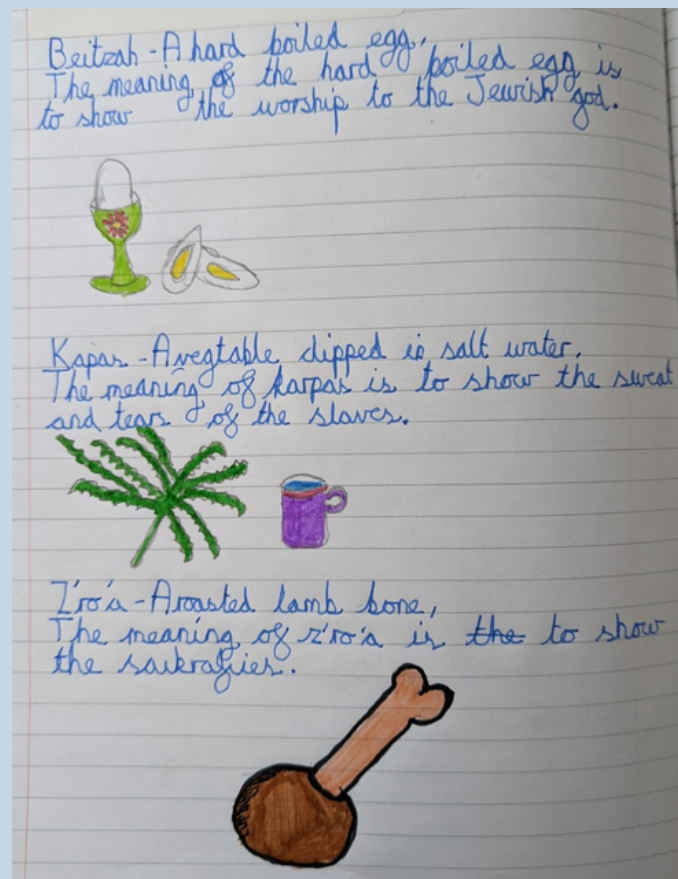 Beitzah - A hard boiled egg,
The meaning of the hard boiled egg is
to show the worship to the Jewish god.
Kapas - A vegtable dipped in salt water,
The meaning of karpas is to show the sweat
and tears of the slaves.
Z'ro'a - A roasted lamb bone,
The meaning of z'ro'a is the to show
the saikrafies.